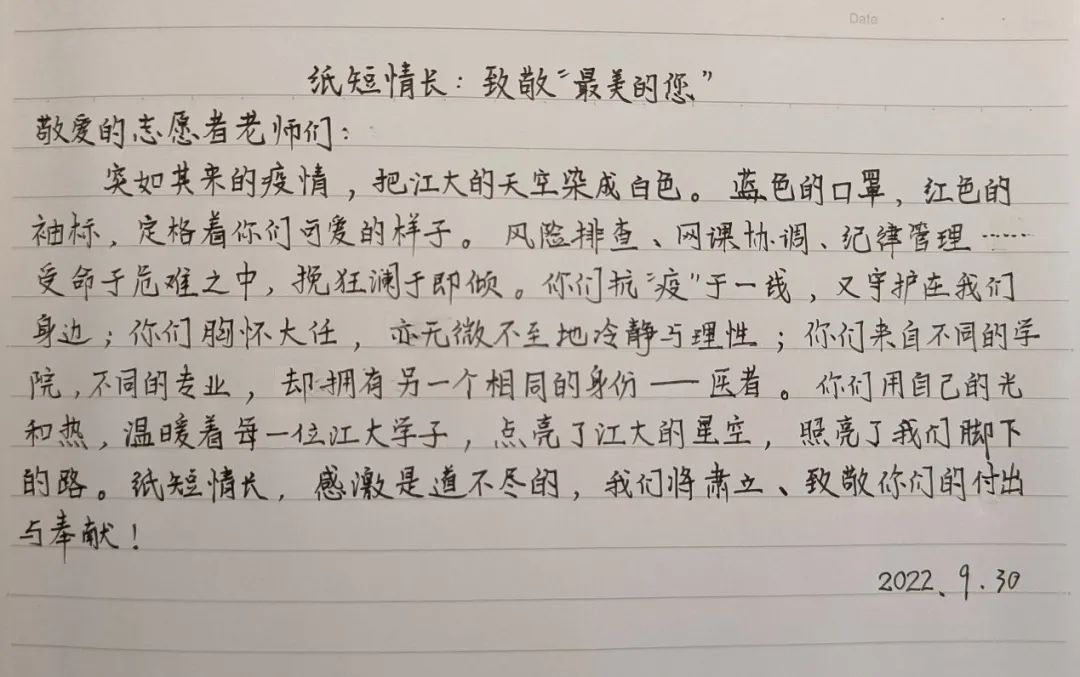 Date
纸短情长：致敬“最美的您”
敬爱的志愿者老师们：
突如其来的疫情，把江大的天空染成白色。蓝色的口罩，红色的
袖标，定格着你们可爱的样子。风险排查、网课协调、纪律管理……
受命于危难之中，挽狂澜于即倾。你们抗“疫”于一线，又守护在我们
身边；你们胸怀大任，亦无微不至地冷静与理性；你们来自不同的学
院，不同的专业，却拥有另一个相同的身份——医者。你们用自己的光
和热，温暖着每一位江大学子，点亮了江大的星空，照亮了我们脚下
的路。纸短情长，感激是道不尽的，我们将肃立、致敬你们的付出
与奉献！
2022、9.30